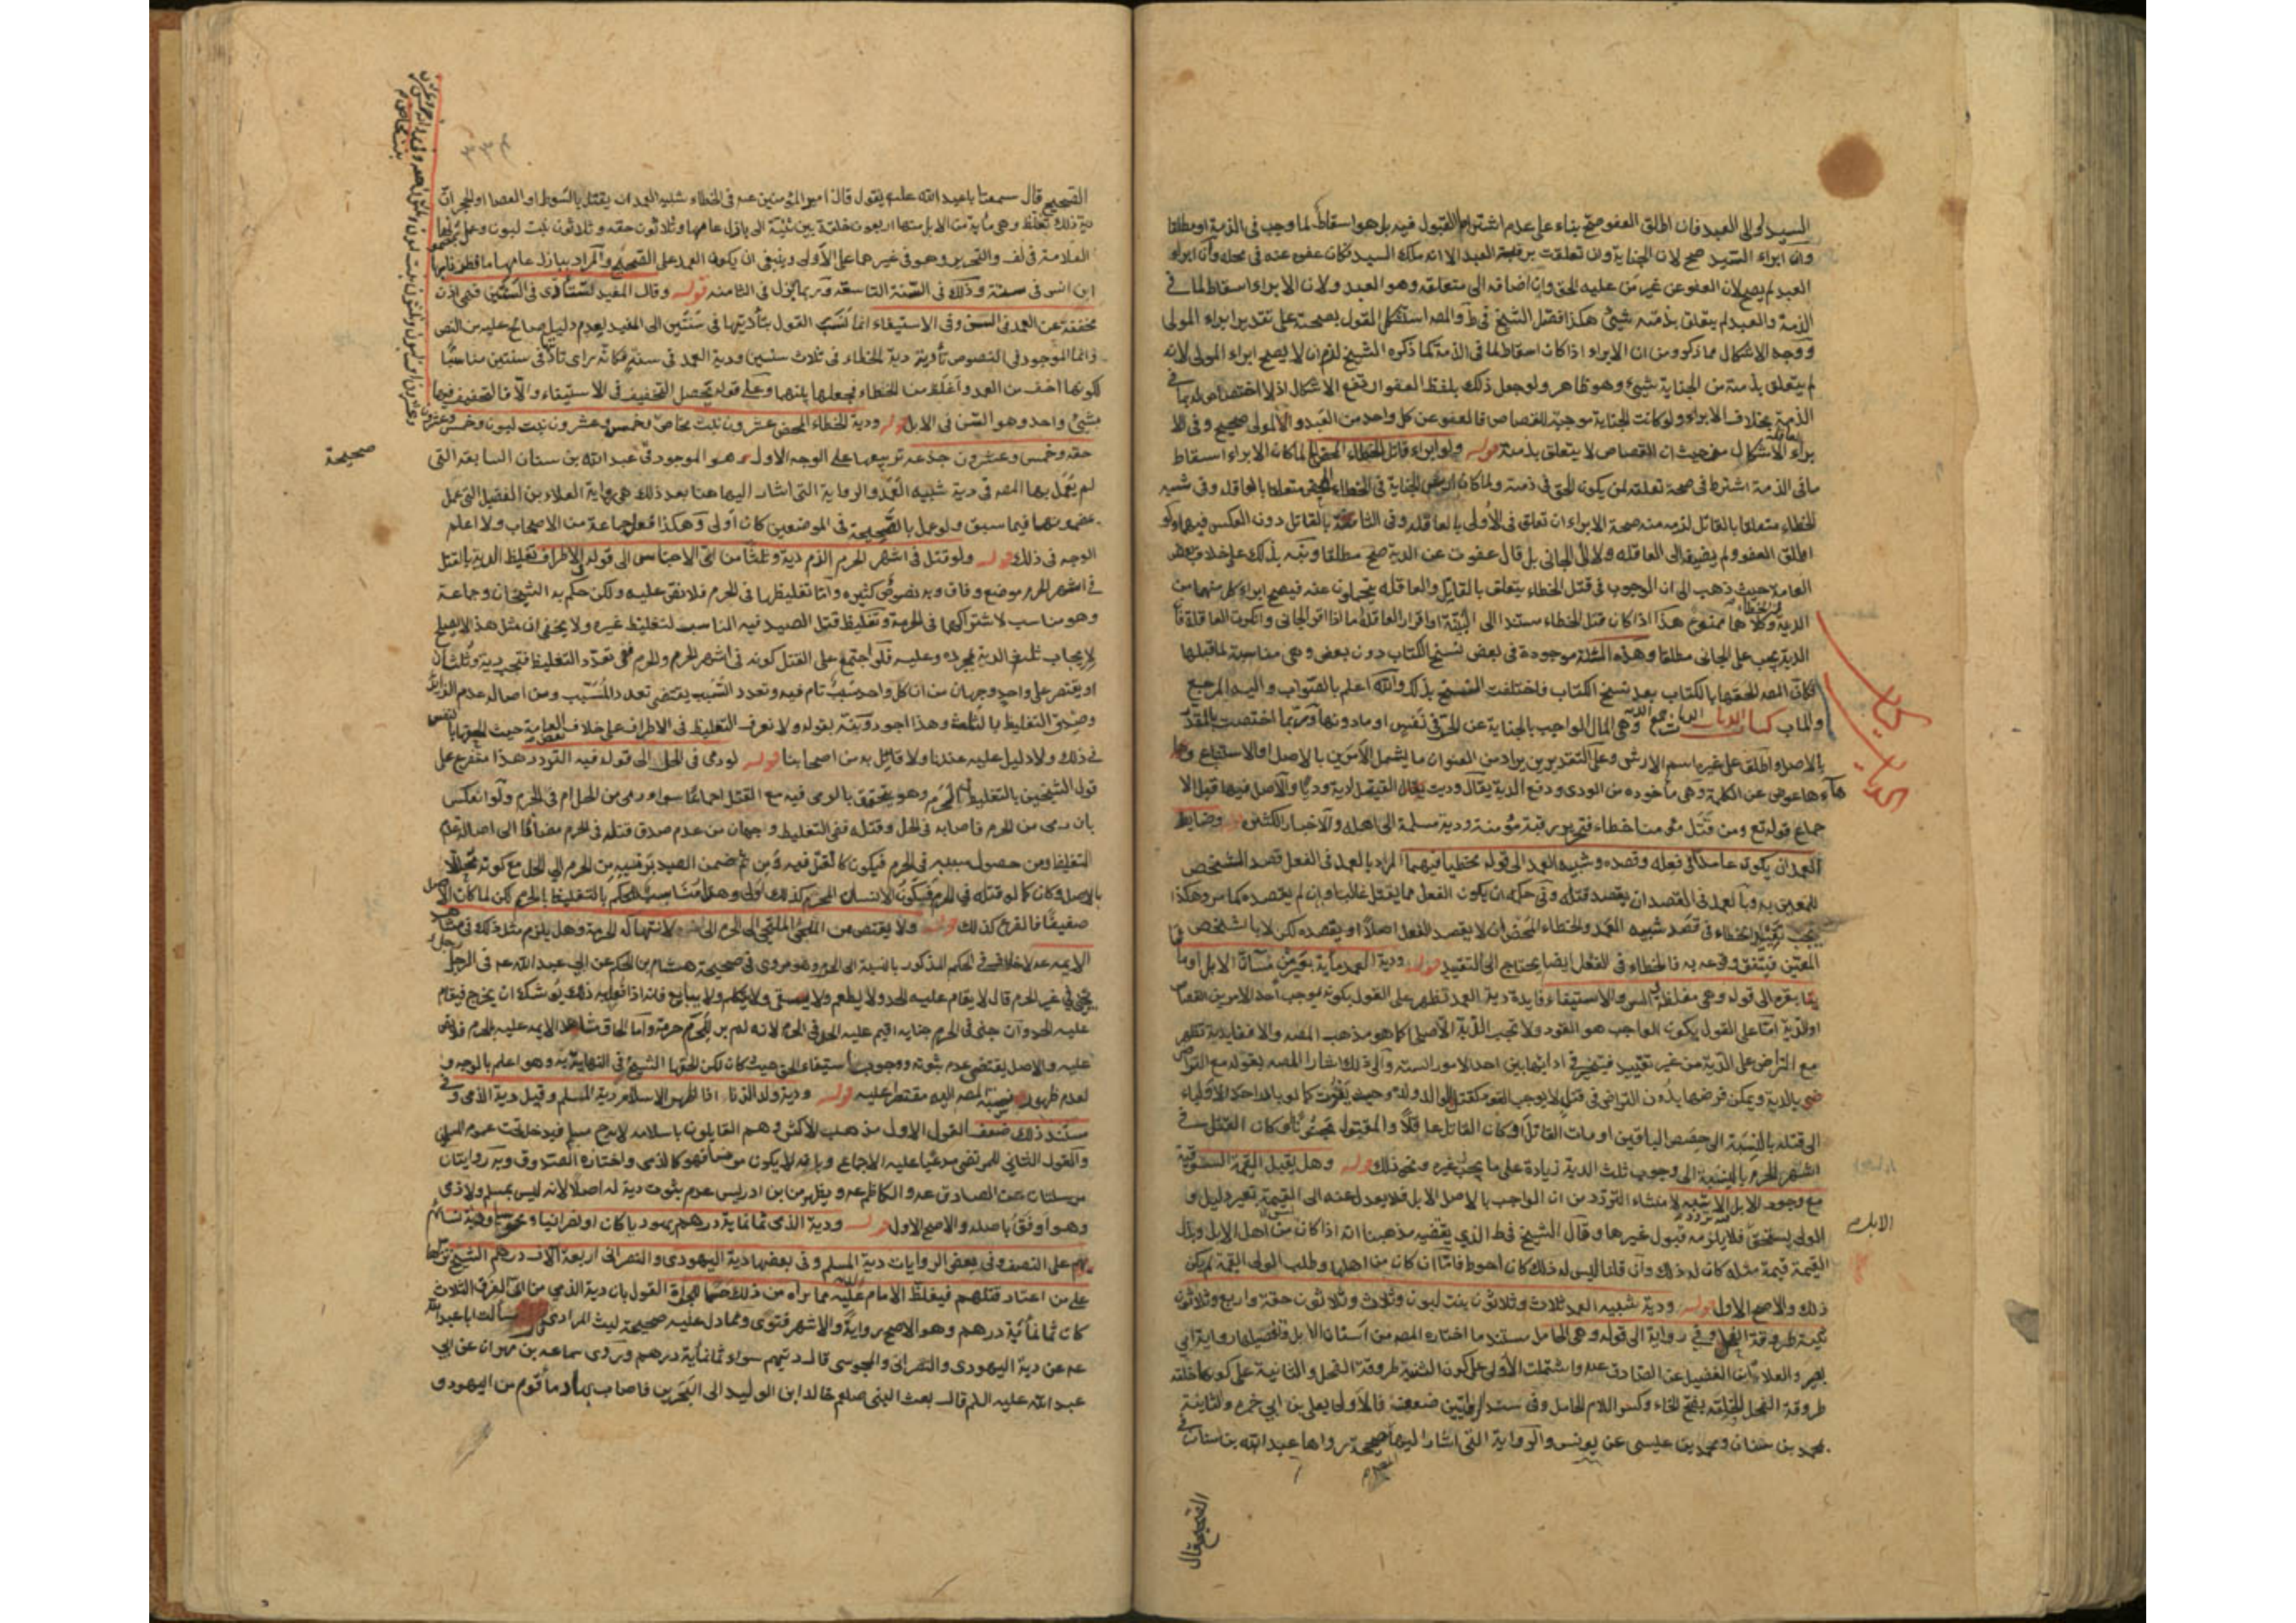 السيد لولى العبد فان اطلق العفو صح بناء على عدم اشتراط القبول فيه بل هو اسقاط لما وجب فى الذمة او مطلقا
وان ابراء السيد صح لان الجناية وان تعلقت برقبة العبد الا انه ملك السيد فكان عفوه عنه فى محله وان ابراء
العبد لم يصح لان العفو عن غير من عليه الحق وان اضافه الى متعلقه وهو العبد ولان الابراء اسقاط لما فى
الذمة والعبد لم يتعلق بذمته شيئ هكذا فصل الشيخ فى ط والمصه استشكل القول بصحته على تقدير ابراء المولى
ووجه الاشكال مما ذكر ومن ان الابراء اذا كان اسقاطا لما فى الذمة كما ذكره الشيخ لزم ان لا يصح ابراء المولى لانه
لم يتعلق بذمته من الجناية شيئ وهو ظاهر ولو جعل ذلك بلفظ العفو ارتفع الاشكال اذ لا اختصاص له بما فى
الذمة بخلاف الابراء ولو كانت الجناية موجبة للقصاص فالعفو عن كل واحد من العبد والمولى صحيح وفى الا
براء الاشكال من حيث ان القصاص لا يتعلق بذمته قوله ولو ابراء قاتل الخطاء المحض لما كان الابراء اسقاط
ما فى الذمة اشترط فى صحة تعلقه لمن يكون الحق فى ذمته ولما كان ارش الجناية فى الخطاء المحض متعلقا بالعاقلة وفى شبيه
الخطاء متعلقا بالقاتل لزم منه صحة الابراء ان تعلق فى الاولى بالعاقلة وفى الثانية بالقاتل دون العكس فيهما ولو
اطلق العفو ولم يضيفه الى العاقلة ولا الى الجانى بل قال عفوت عن الدية صح مطلقا ونبه بذلك على خلاف بعض
العامة حيث ذهب الى ان الوجوب فى قتل الخطاء يتعلق بالقاتل والعاقلة يتحملون عنه فيصح ابراء كل منهما من
الدية وكلاهما ممنوع هذا اذا كان قتل الخطاء مستندا الى البينة او اقرار العاقلة اما اذا اقر الجانى وانكرت العاقلة فان
الدية يجب على الجانى مطلقا وهذه المسئلة موجودة فى بعض نسخ الكتاب دون بعض وهى مناسبة لما قبلها
فكان المصه الحقها بالكتاب بعد نسخ الكتاب فاختلفت النسخ بذلك والله اعلم بالصواب واليه المرجع
والماب كتاب الديات الديات جمع الدية وهى المال الواجب بالجناية عن الحر فى نفس او ما دونها وربما اختصت بالمقدر
بالاصل واطلق على غيره اسم الارش وعلى التقديرين يراد من العنوان ما يشمل الامرين بالاصل او الاستتباع وها
هاءها عوض عن الكلمة وهى ماخوذه من الودى ودفع الدية يقال وديت القتيل ادية ودية والاصل فيها قبل الا
جماع قوله تع ومن قتل مؤمنا خطاء فتحرير رقبة مؤمنة ودية مسلمة الى اهله والاخبار الكثيرة قوله وضابط
العمد ان يكون عامدا فى فعله وقصده وشبيه العمد الى قوله مخطيا فيهما المراد بالعمد فى الفعل قصد الشخص
المعين به وبالعمد فى القصد ان يقصد قتله وفى حكمه ان يكون الفعل مما يقتل غالبا وان لم يقصده كما مر وهكذا
يجب تقييد الخطاء فى قصد شبيه العمد والخطاء المحض ان لا يقصد الفعل اصلا او يقصده لكن لا بالشخص
المعين فيتفق وقوعه به فالخطاء فى الفعل ايضا يحتاج الى التقييد قوله ودية العمد مأية بعير من مسان الابل او ما
يتا بقرة الى قوله وهى مغلظة فى السن والاستيفاء فايدة دية العمد تظهر على القول بكونه يوجب احد الامرين القصاص
او الدية امّا على القول يكون الواجب هو القود ولا تجب الدية الا صلحا كما هو مذهب المصه والا ففايدته تظهر
مع التراضى على الدية من غير تعيين فيتخير فى ادائها بين احد الامور الستة والى ذلك اشار المصه بقوله مع الترا
ضى بالدية ويمكن فرضها بدون التراضى فى قتل لا يوجب القود كقتل الوالد ولده وحيث يفوت كما لو بادر احد الاولياء
الى قتله بالنسبة الى حصص الباقين او مات القاتل او كان القاتل عاقلا والمقتول مجنونا او كان القتل فى
اشهر الحرم بالنسبة الى وجوب ثلث الدية زيادة على ما يجب بغيره ونحو ذلك قوله وهل يقبل القيمة السوقية
مع وجود الابل الاشبه لا منشاء التردد من ان الواجب بالاصل الابل فلا يعدل عنه الى القيمة بغير دليل و
الولى يستحق فلا يلزمه قبول غيرها وقال الشيخ فى ط الذي يقتضيه مذهبنا انه اذا كان من اهل الابل وبذل
القيمة قيمة مثله كان له ذلك وان قلنا ليس له ذلك كان احوط فاما ان كان من اهلها وطلب الولى القيمة لم يكن
ذلك والاصح الاول قوله ودية شبيه العمد ثلاث وثلاثون بنت لبون وثلاث وثلاثون حقة واربع وثلاثون
ثنية طروقة الفحل وفى رواية الى قوله وهى الحامل مستند ما اختاره المصه من اسنان الابل وتفصيلها رواية ابي
بصير والعلاء ابن الفضيل عن الصادق عه واشتملت الاولى على كون الثنية طروقة الفحل والثانية على كونها خلفه
طروقة الفحل الخلفه بفتح الخاء وكسر اللام الحامل وفى سند الروايتين ضعف فالاولى بعلى بن ابي حمزه والثانية
بمحمد بن سنان ومحمد بن عيسى عن يونس والرواية التى اشار اليها صحيحة رواها عبد الله بن سنان فى
الصحيح قال
كتاب
الديات
الابل م
الصحيح قال سمعت ابا عبد الله عليه يقول قال امير المؤمنين عه فى الخطاء شبيه العمد ان يقتل بالسوط او العصا او الحجر ان
دية ذلك تغلظ وهى مأية من الابل منها اربعون خلفة بين ثنية الى بازل عامها وثلاثون حقه وثلاثون بنت لبون وعمل بمضمونها
العلامة فى لف والتحرير وهو فى غيرهما على الاولى وينبغى ان يكون العمد على الصحيح والمراد ببازل عامها ما فطر نابها
اى انشق فى سنته وذلك فى السنة التاسعة وربما بزل فى الثامنه قوله وقال المفيد تستأدى فى السنتين فهى اذن
مخففة عن العمد فى السن وفى الاستيفاء انما نسب القول بتأديتها فى سنتين الى المفيد لعدم دليل صالح عليه من النص
وانما الموجود فى النصوص تأدية دية الخطاء فى ثلاث سنين ودية العمد فى سنة فكانه راى تاديتها فى سنتين مناسبا
لكونها اخف من العمد واغلظ من الخطاء فجعلها بينهما وعلى قوله يحصل التخفيف فى الاستيفاء والا فالتخفيف فيها
بشيئ واحد وهو السن فى الابل قوله ودية الخطاء المحض عشرون بنت مخاض وخمس وعشرون بنت لبون وخمس وعشرون
حقه وخمس وعشرون جذعه تربيعها على الوجه الاول هو الموجود فى عبد الله بن سنان السابقة التى
لم يعمل بها المصه فى دية شبيه العمد والرواية التى اشار اليها هنا بعد ذلك هى رواية العلاء بن الفضيل التى عمل
بمضمونها فيما سبق ولو عمل بالصحيحة فى الموضعين كان اولى وهكذا فعل جماعة من الاصحاب ولا اعلم
الوجه فى ذلك قوله ولو قتل فى اشهر الحرم الزم دية وثلثا من اى الاجناس الى قوله الاطراف تغليظ الدية بالقتل
فى اشهر الحرم موضع وفاق وبه نصوص كثيره واما تغليظها فى الحرم فلا نص عليه ولكن حكم به الشيخان وجماعة
وهو مناسب لاشتراكهما فى الحرمة وتغليظ قتل الصيد فيه المناسب لتغليظ غيره ولا يخفى ان مثل هذا لا يصلح
لايجاب ثلث الدية بمجرده وعليه فلو اجتمع على القتل كونه فى اشهر الحرم والحرم ففى تعدد التغليظ فتجب دية وثلثان
او يقتصر على واحد وجهان من ان كل واحد سبب تام فيه وتعدد السبب يقتضى تعدد المسبب ومن اصالة عدم الزايد
وصدق التغليظ بالثلث وهذا اجود ونبه بقوله ولا نعرف التغليظ فى الاطراف على خلاف بعض العامة حيث الحقها بالنفس
فى ذلك ولا دليل عليه عندنا ولا قائل به من اصحابنا قوله لو رمى فى الحل الى قوله فيه التردد هذا متفرع على
قول الشيخين بالتغليظ فى الحرم وهو يتحقق بالرمى فيه مع القتل اجماعا سواء رمى من الحل ام فى الحرم ولو انعكس
بان رمى من الحرم فاصابه فى الحل وقتله ففى التغليظ وجهان من عدم صدق قتله فى الحرم مضافا الى اصالة عدم
التغليظ ومن حصول سببه فى الحرم فيكون كالقتل فيه ومن ثم ضمن الصيد برميه من الحرم الى الحل مع كونه محللا
بالاصل وكان كما لو قتله فى الحرم فيكون الانسان المحترم كذلك اولى وهذا مناسب للحكم بالتغليظ بالحرم لكن لما كان الاصل
ضعيفا فالفرع كذلك قوله ولا يقتص من الملتجى الى الحرم الى قوله لانتهاكه الحرمة وهل يلزم مثل ذلك فى مشاهد
الايمه عه لا خلاف فى الحكم المذكور بالنسبة الى الحرم وهو مروى فى صحيحة هشام بن الحكم عن ابي عبد الله عه فى الرجل
يجنى في غير الحرم قال لا يقام عليه الحد ولا يطعم ولا يسقى ولا يكلم ولا يبايع فانه اذا فعل به ذلك يوشك ان يخرج فيقام
عليه الحد وان جنى فى الحرم جناية اقيم عليه الحد فى الحرم لانه لم ير للحرم حرمة واما الحاق مشاهد الايمه عليه بالحرم فلا نص
عليه والاصل يقتضى عدم ثبوته ووجوب استيفاء الحق حيث كان لكن الحقها الشيخ فى النهاية به وهو اعلم بالوجه و
لعدم ظهوره نسبه المصه اليه مقتصرا عليه قوله ودية ولد الزنا اذا اظهر الاسلام دية المسلم وقيل دية الذمى وفى
سند ذلك ضعف القول الاول مذهب الاكثر وهم القايلون باسلامه لاندراج مسلم فيدخل تحت عموم المسلمين
والقول الثانى للمرتضى مدعيا عليه الاجماع وبانه لا يكون مؤمنا فهو كالذمى واختاره الصدوق وبه روايتان
مرسلتان عن الصادق عه والكاظم عه ويظهر من ابن ادريس عدم ثبوت دية له اصلا لانه ليس بمسلم ولا ذمى
وهو اوفق باصله والاصح الاول قوله ودية الذمى ثمانماية درهم يهوديا كان او نصرانيا او مجوسيا ودية نسائهم
على النصف وفى بعض الروايات دية المسلم وفى بعضها دية اليهودى والنصرانى اربعة آلاف درهم الشيخ نزلها
على من اعتاد قتلهم فيغلظ الامام عليه مما يراه من ذلك حسما للجرأة القول بان دية الذمي من اى الفرق الثلاث
كان ثمانمائة درهم وهو الاصح رواية والاشهر فتوى ومما دل عليه صحيحة ليث المرادى قال سألت ابا عبد الله
عه عن دية اليهودى والنصرانى والمجوسى قال ديتهم سواء ثمانمأية درهم وروى سماعه بن مهران عن ابي
عبد الله عليه السلم قال بعث النبى صلعم خالد ابن الوليد الى البحرين فاصاب بها دماء قوم من اليهود و
صحيحة
٣٣٤